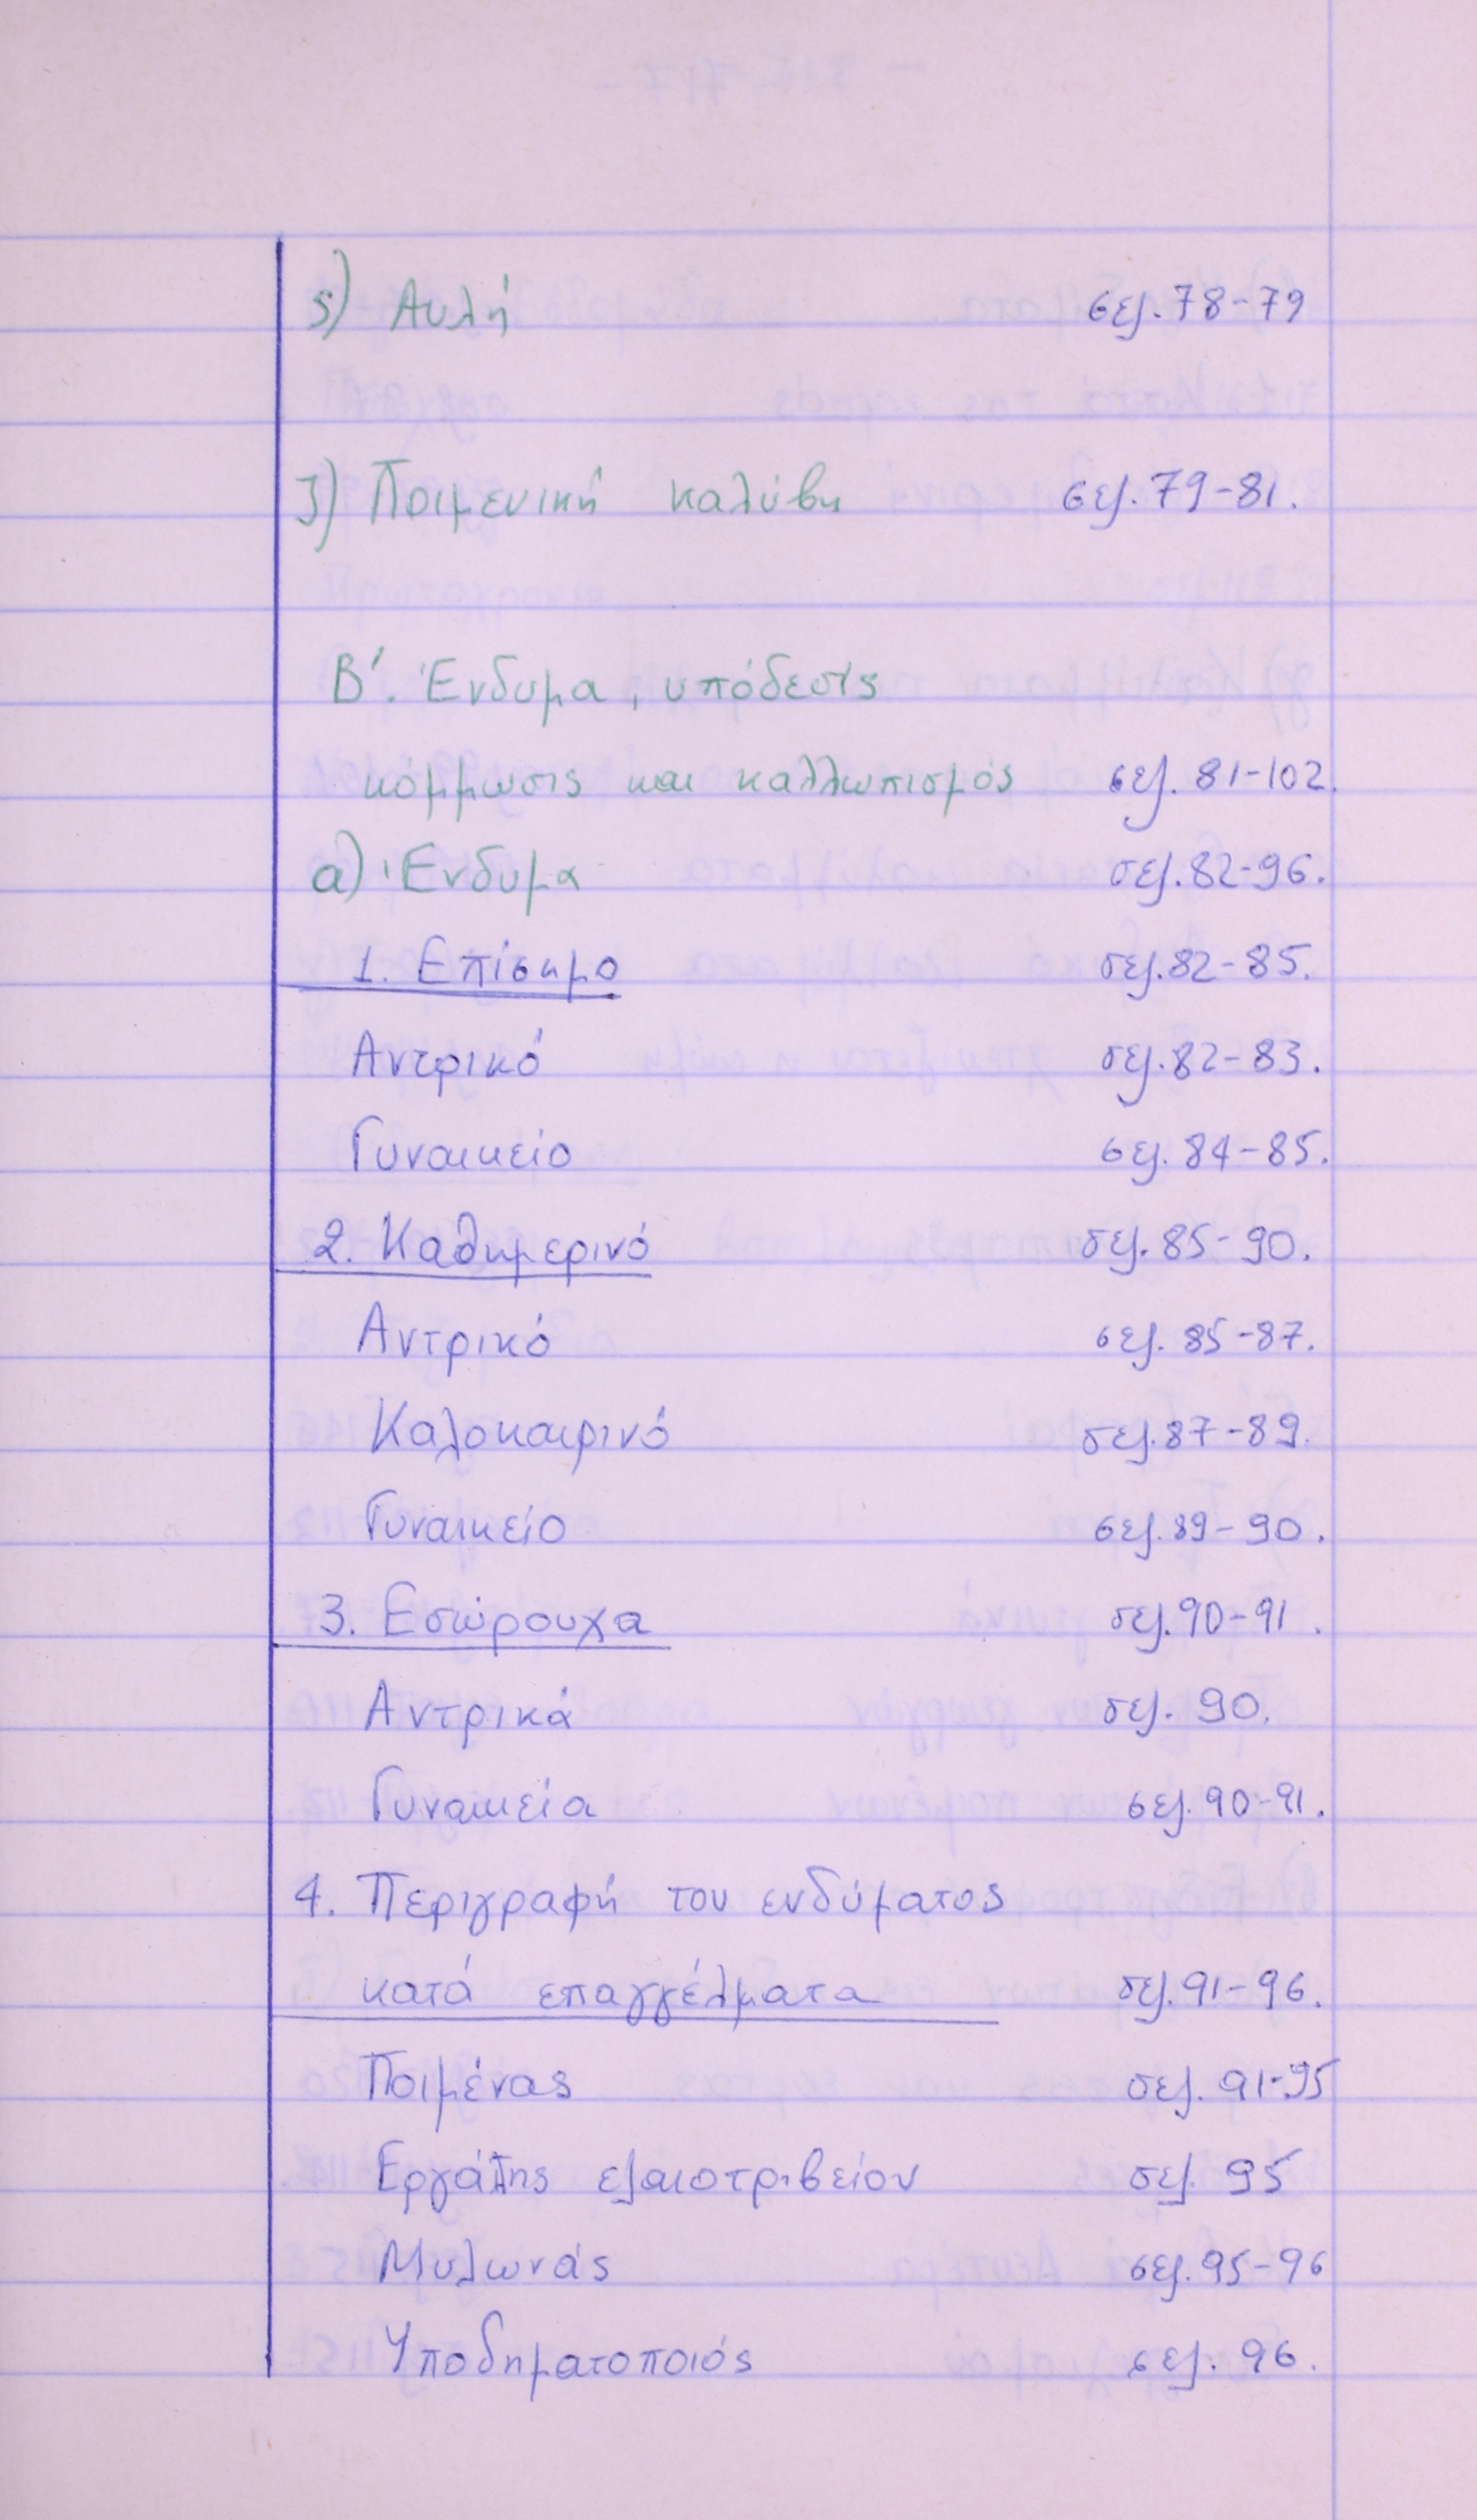 ς) Αυλή σελ. 78-79
ζ) Ποιμενική καλύβη σελ. 79-81.
Β΄. Ένδυμα, υπόδεσις
κόμμωσις και καλλωπισμός σελ. 81-102.
α) Ένδυμα σελ. 82-96.
1. Επίσημο σελ. 82-85.
Αντρικό σελ. 82-83.
Γυναικείο σελ. 84-85.
2. Καθημερινό σελ. 85-90.
Αντρικό σελ. 85-87.
Καλοκαιρινό σελ. 87-89.
Γυναικείο σελ. 89-90.
3. Εσώρουχα σελ. 90-91.
Αντρικά σελ. 90.
Γυναικεία σελ. 90-91.
4. Περιγραφή του ενδύματος
κατά επαγγέλματα σελ. 91-96.
Ποιμένας σελ. 91-95
Εργάτης ελαιοτριβείου σελ. 95
Μυλωνάς σελ. 95-96
Υποδηματοποιός σελ. 96.